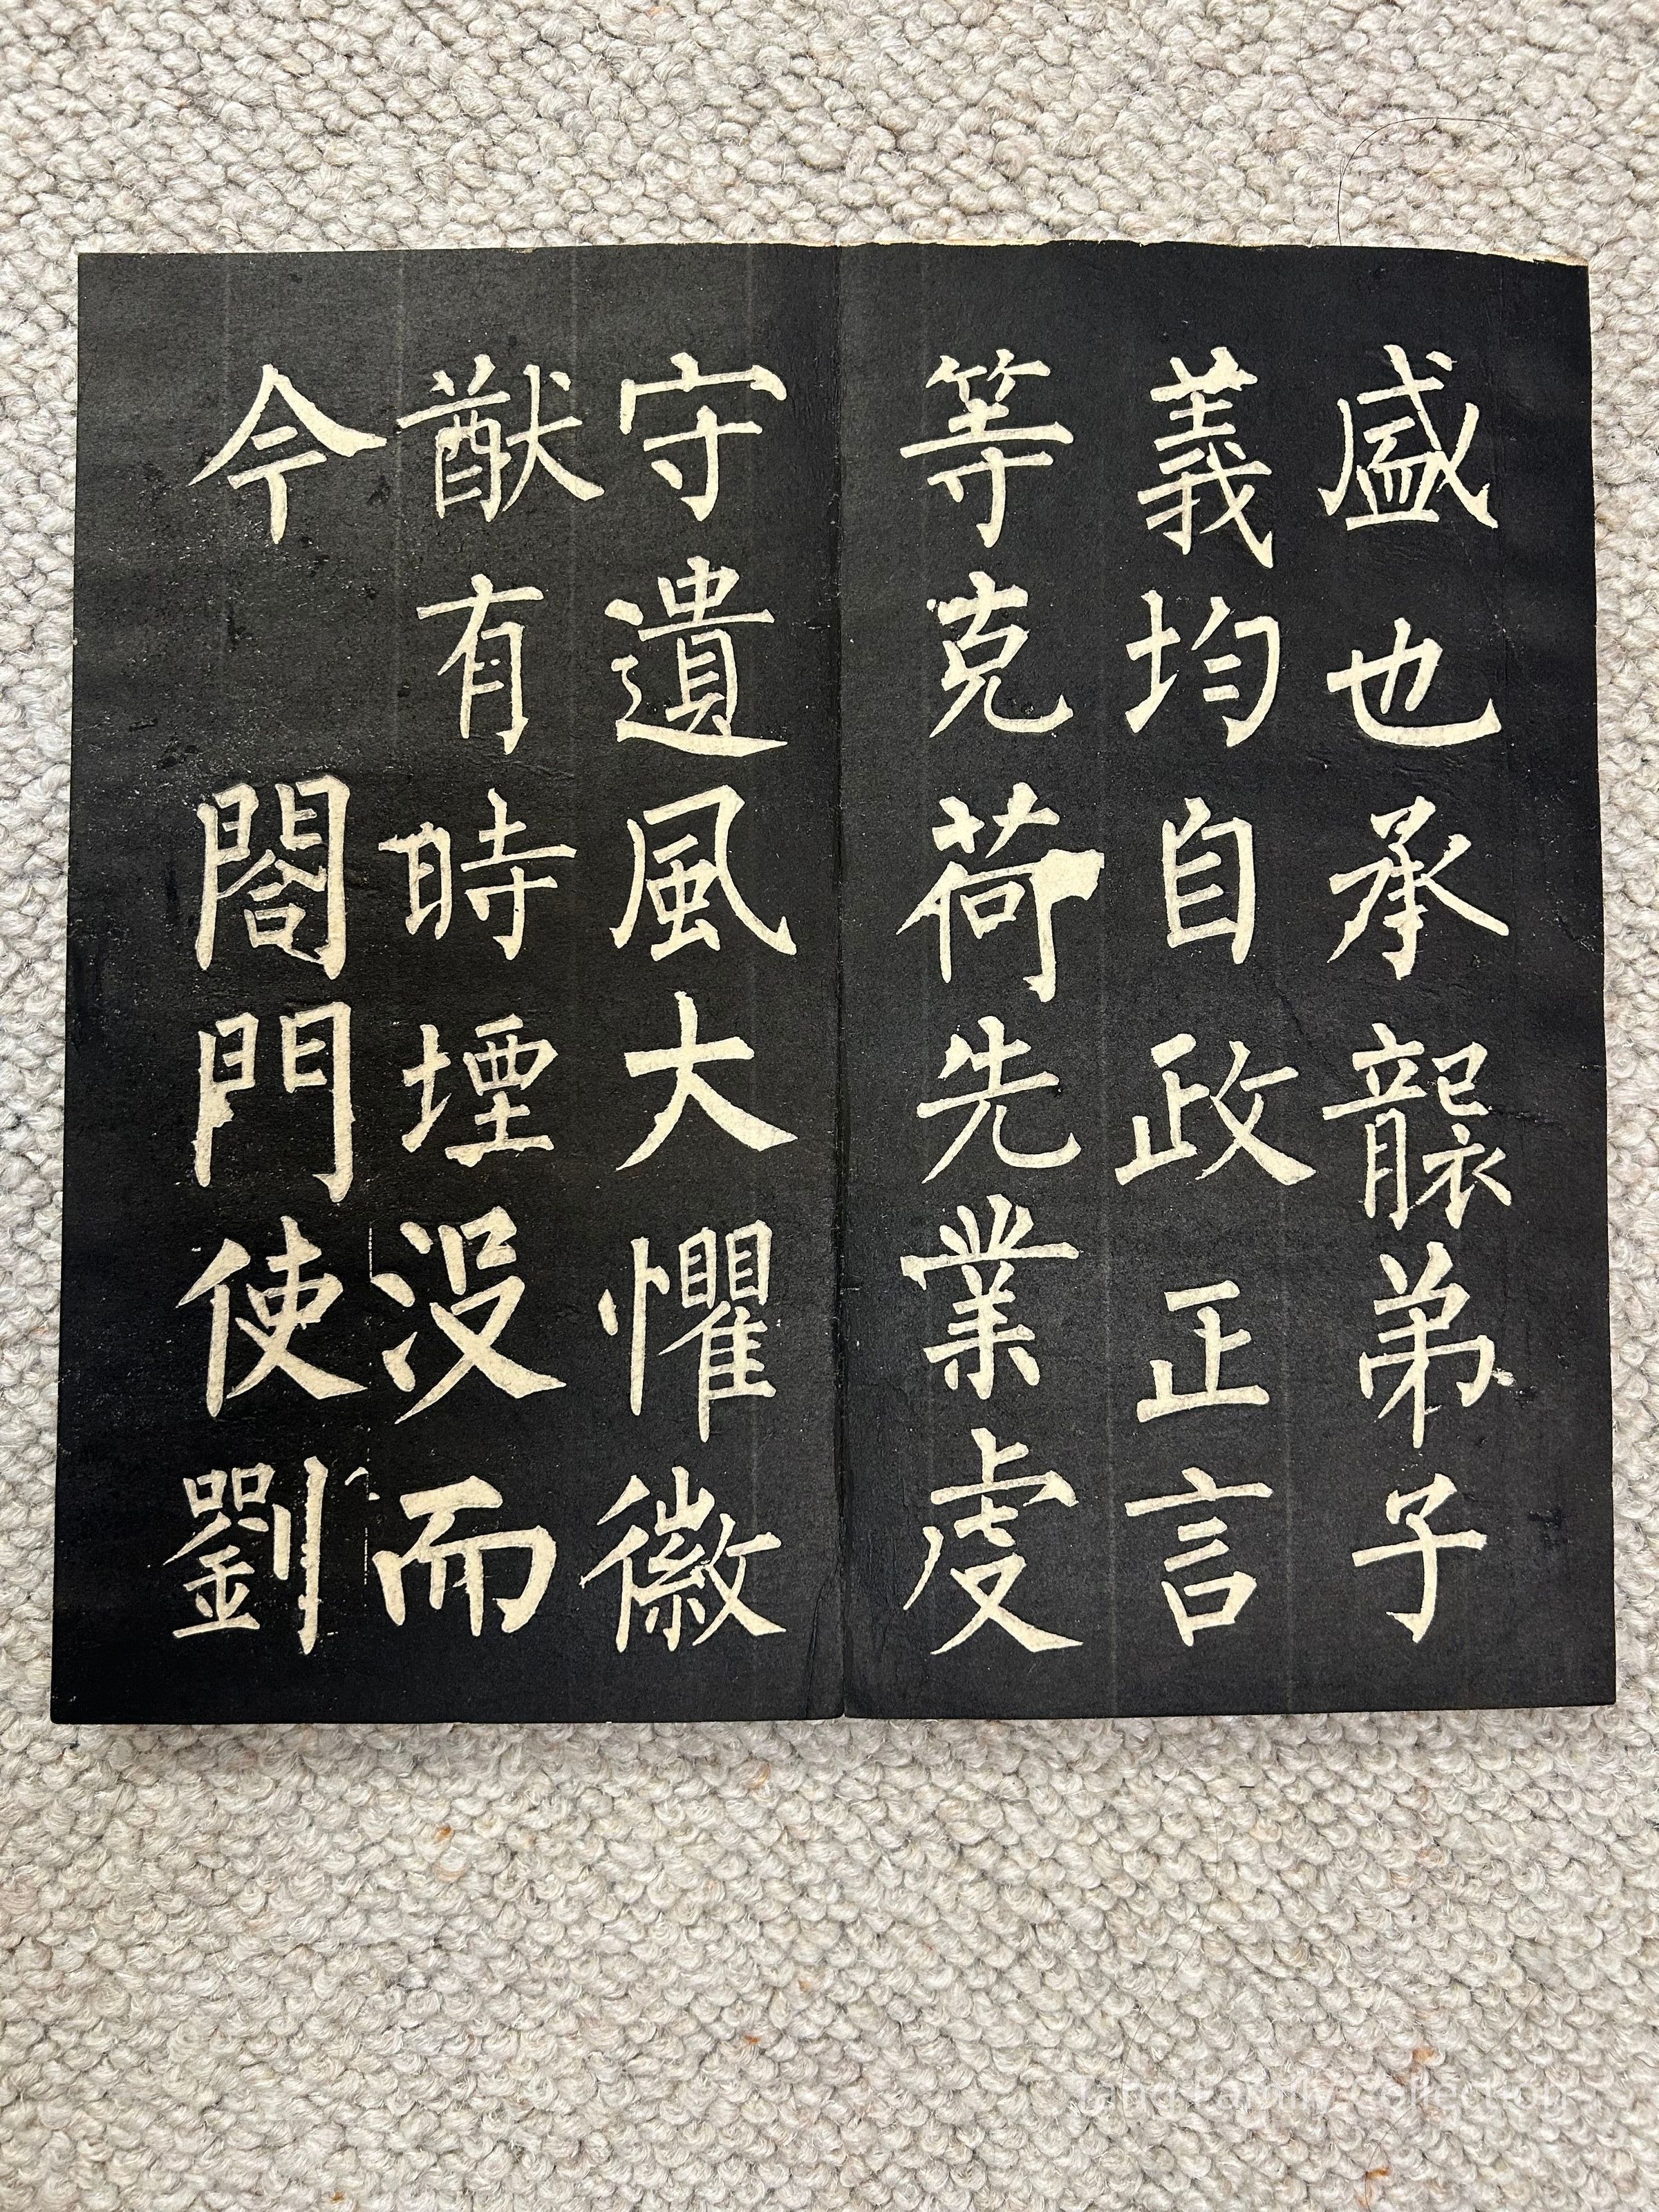 盛也承襲弟子
義均自政正言
等克荷先業虔
守遺風大懼徽
猷有時堙没而
今閤門使劉
Tang Family Collection